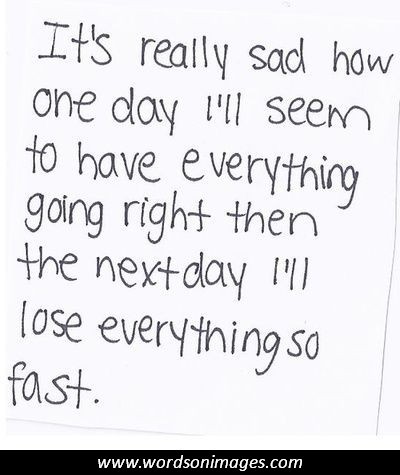 It's really sad how
one day I'll seem
to have everything
going right then
the next day I'll
lose everything so
fast.
www.wordsonimages.com